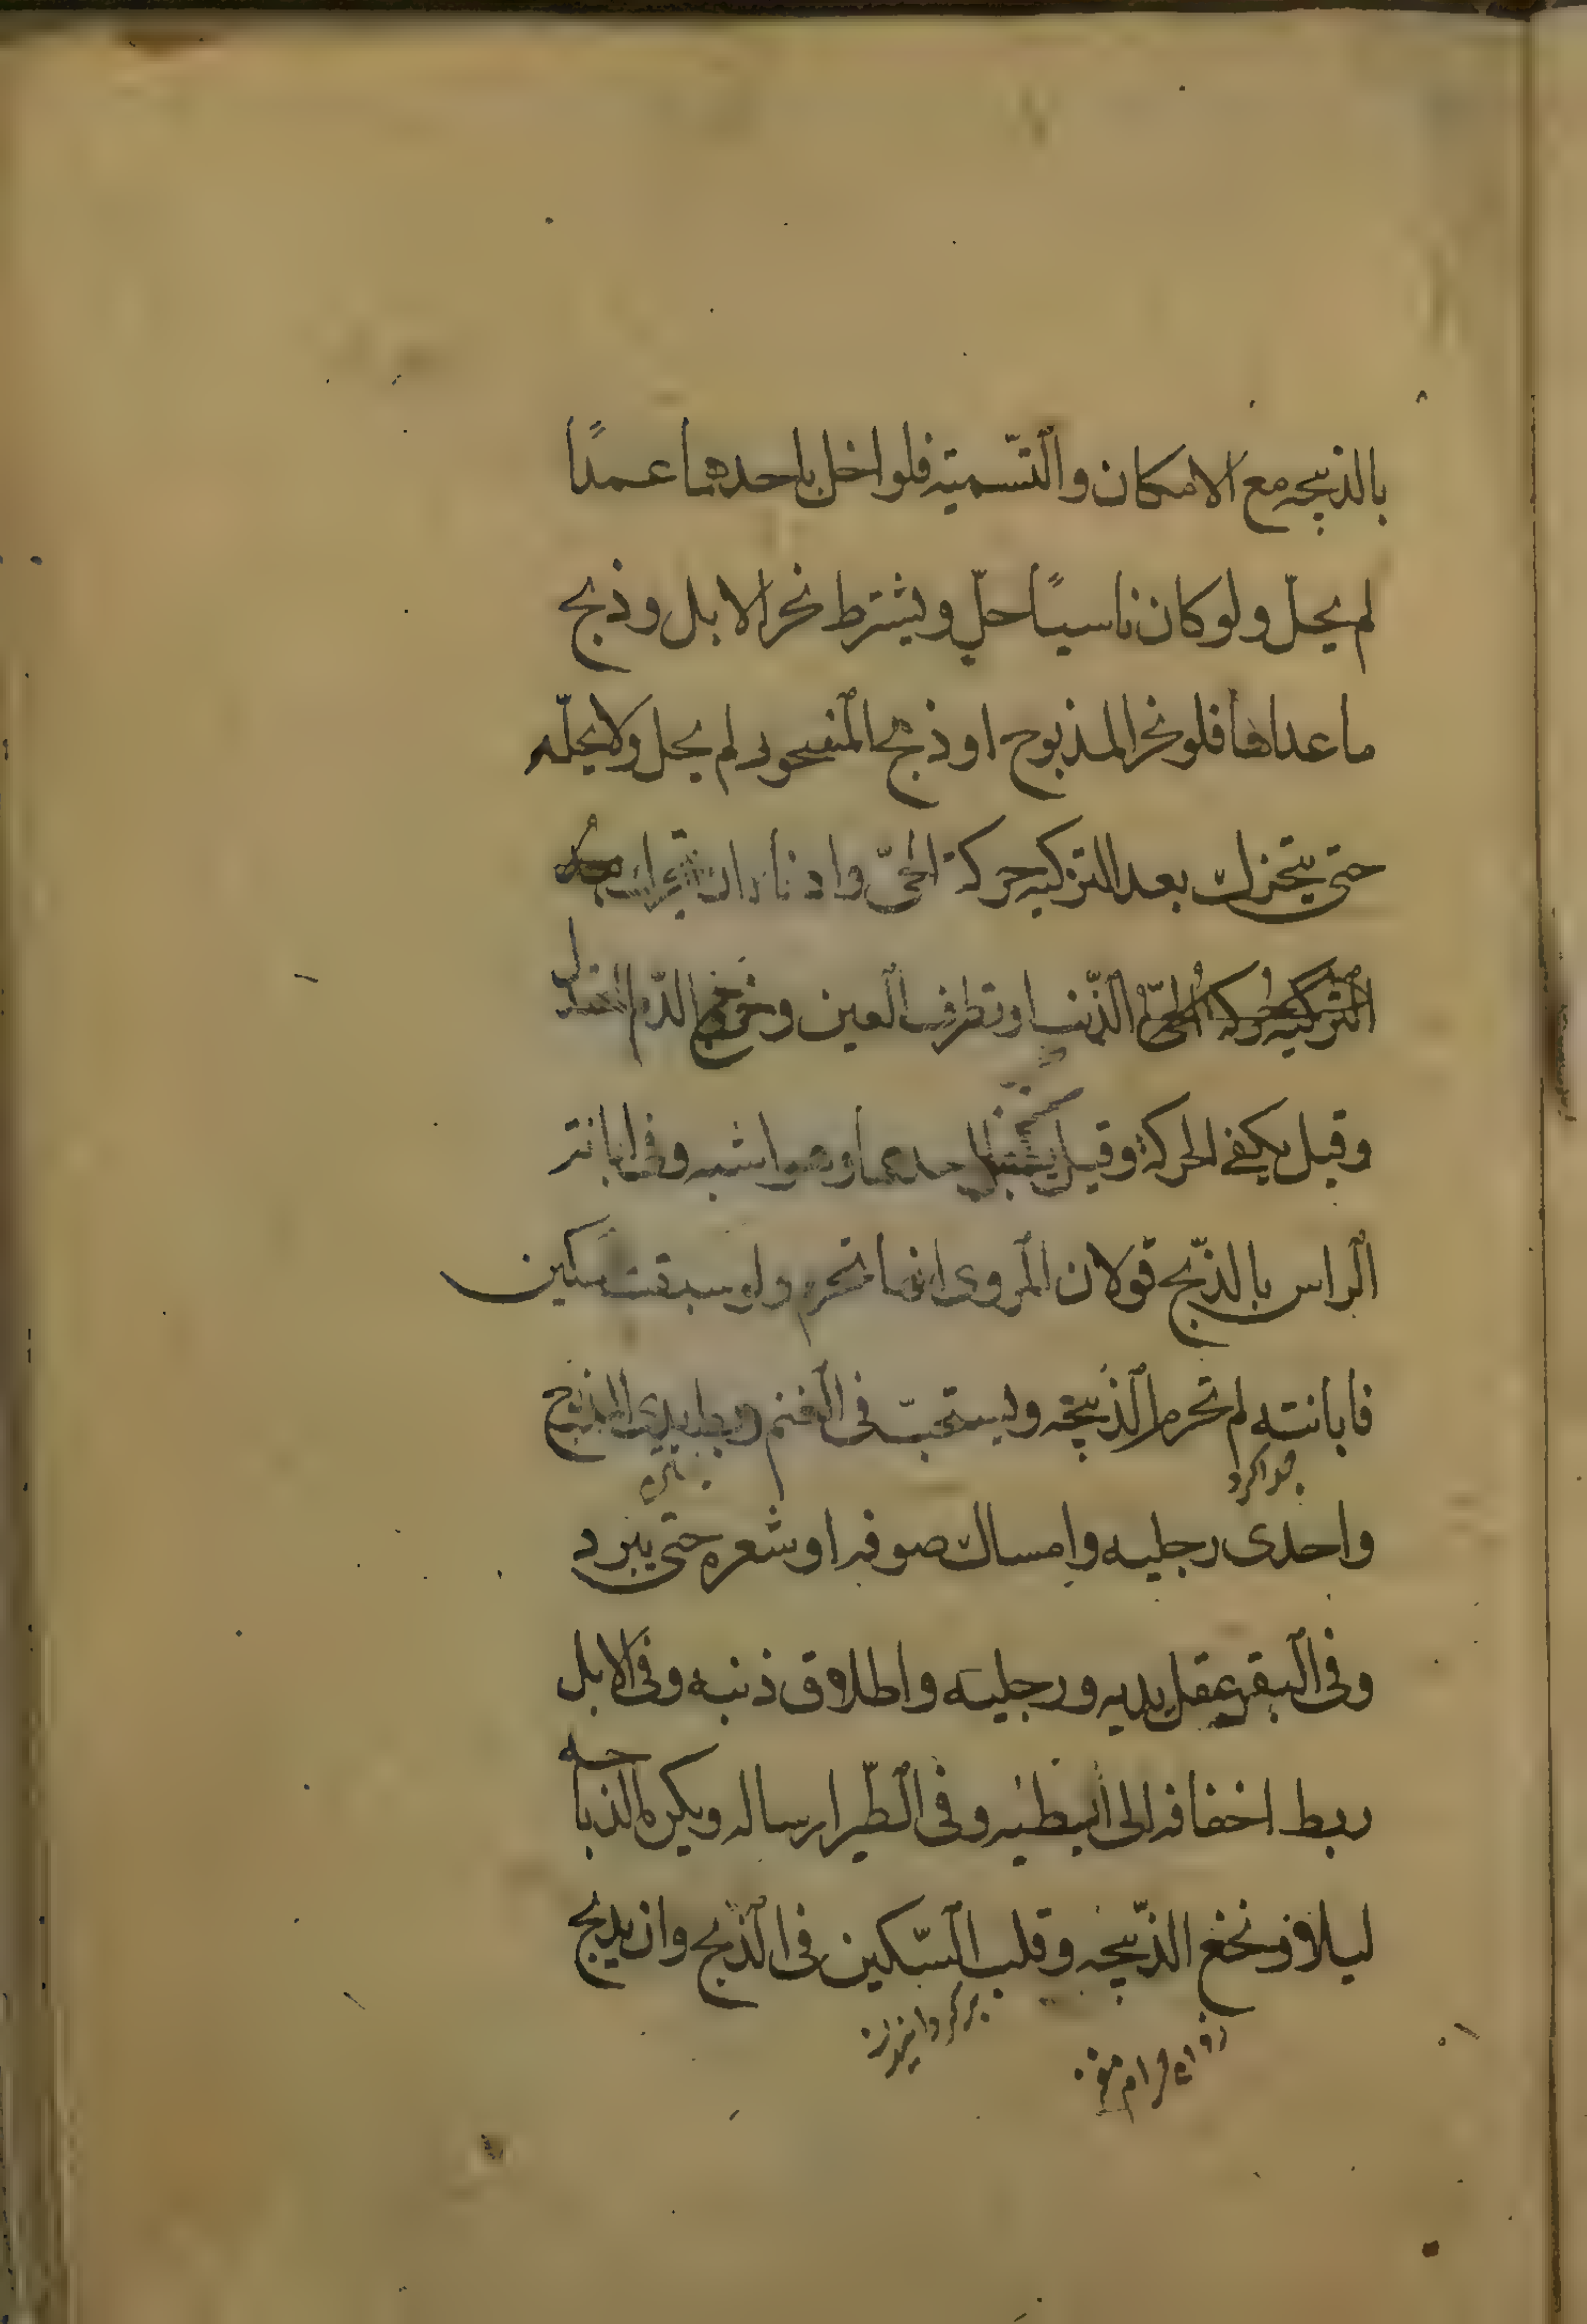 بالذبيحه مع الامكان والتسميته فلو اخل باحدهما عمدًا
لم يحلّ ولو كان ناسيًا حلّ ويشترط نحر الابل وذبح
ما عداها فلو نحر المذبوح او ذبح المنحور لم يحل ولا يحلّه
حتى يتحرك بعد التزكيه حركة الحىّ وادناه ان يتحرك
الذّنب او تطرف العين وخرج الدّم المعتدل
وقيل يكفى الحركة وقيل يكفى احدهما وهو اشبه وفى ابانتر
الراس بالذّبح قولان المروى انها تحرم ولو سبقت سكين
فابانته لم تحرم الذبيحه ويستحبّ فى الغنم ربط يدى المذبوح
جدا كرد
واحدى رجليه وامساك صوفه او شعره حتى يبرد
وفى البقر عقل يديه ورجليه واطلاق ذنبه وفى الابل
ربط اخفافه الى ابطيه وفى الطّير ارساله ويكره الذباحه
ليلا ونخع الذّبيحه وقلب السّكين فى الذبح وان يذبح
بركردانيدن